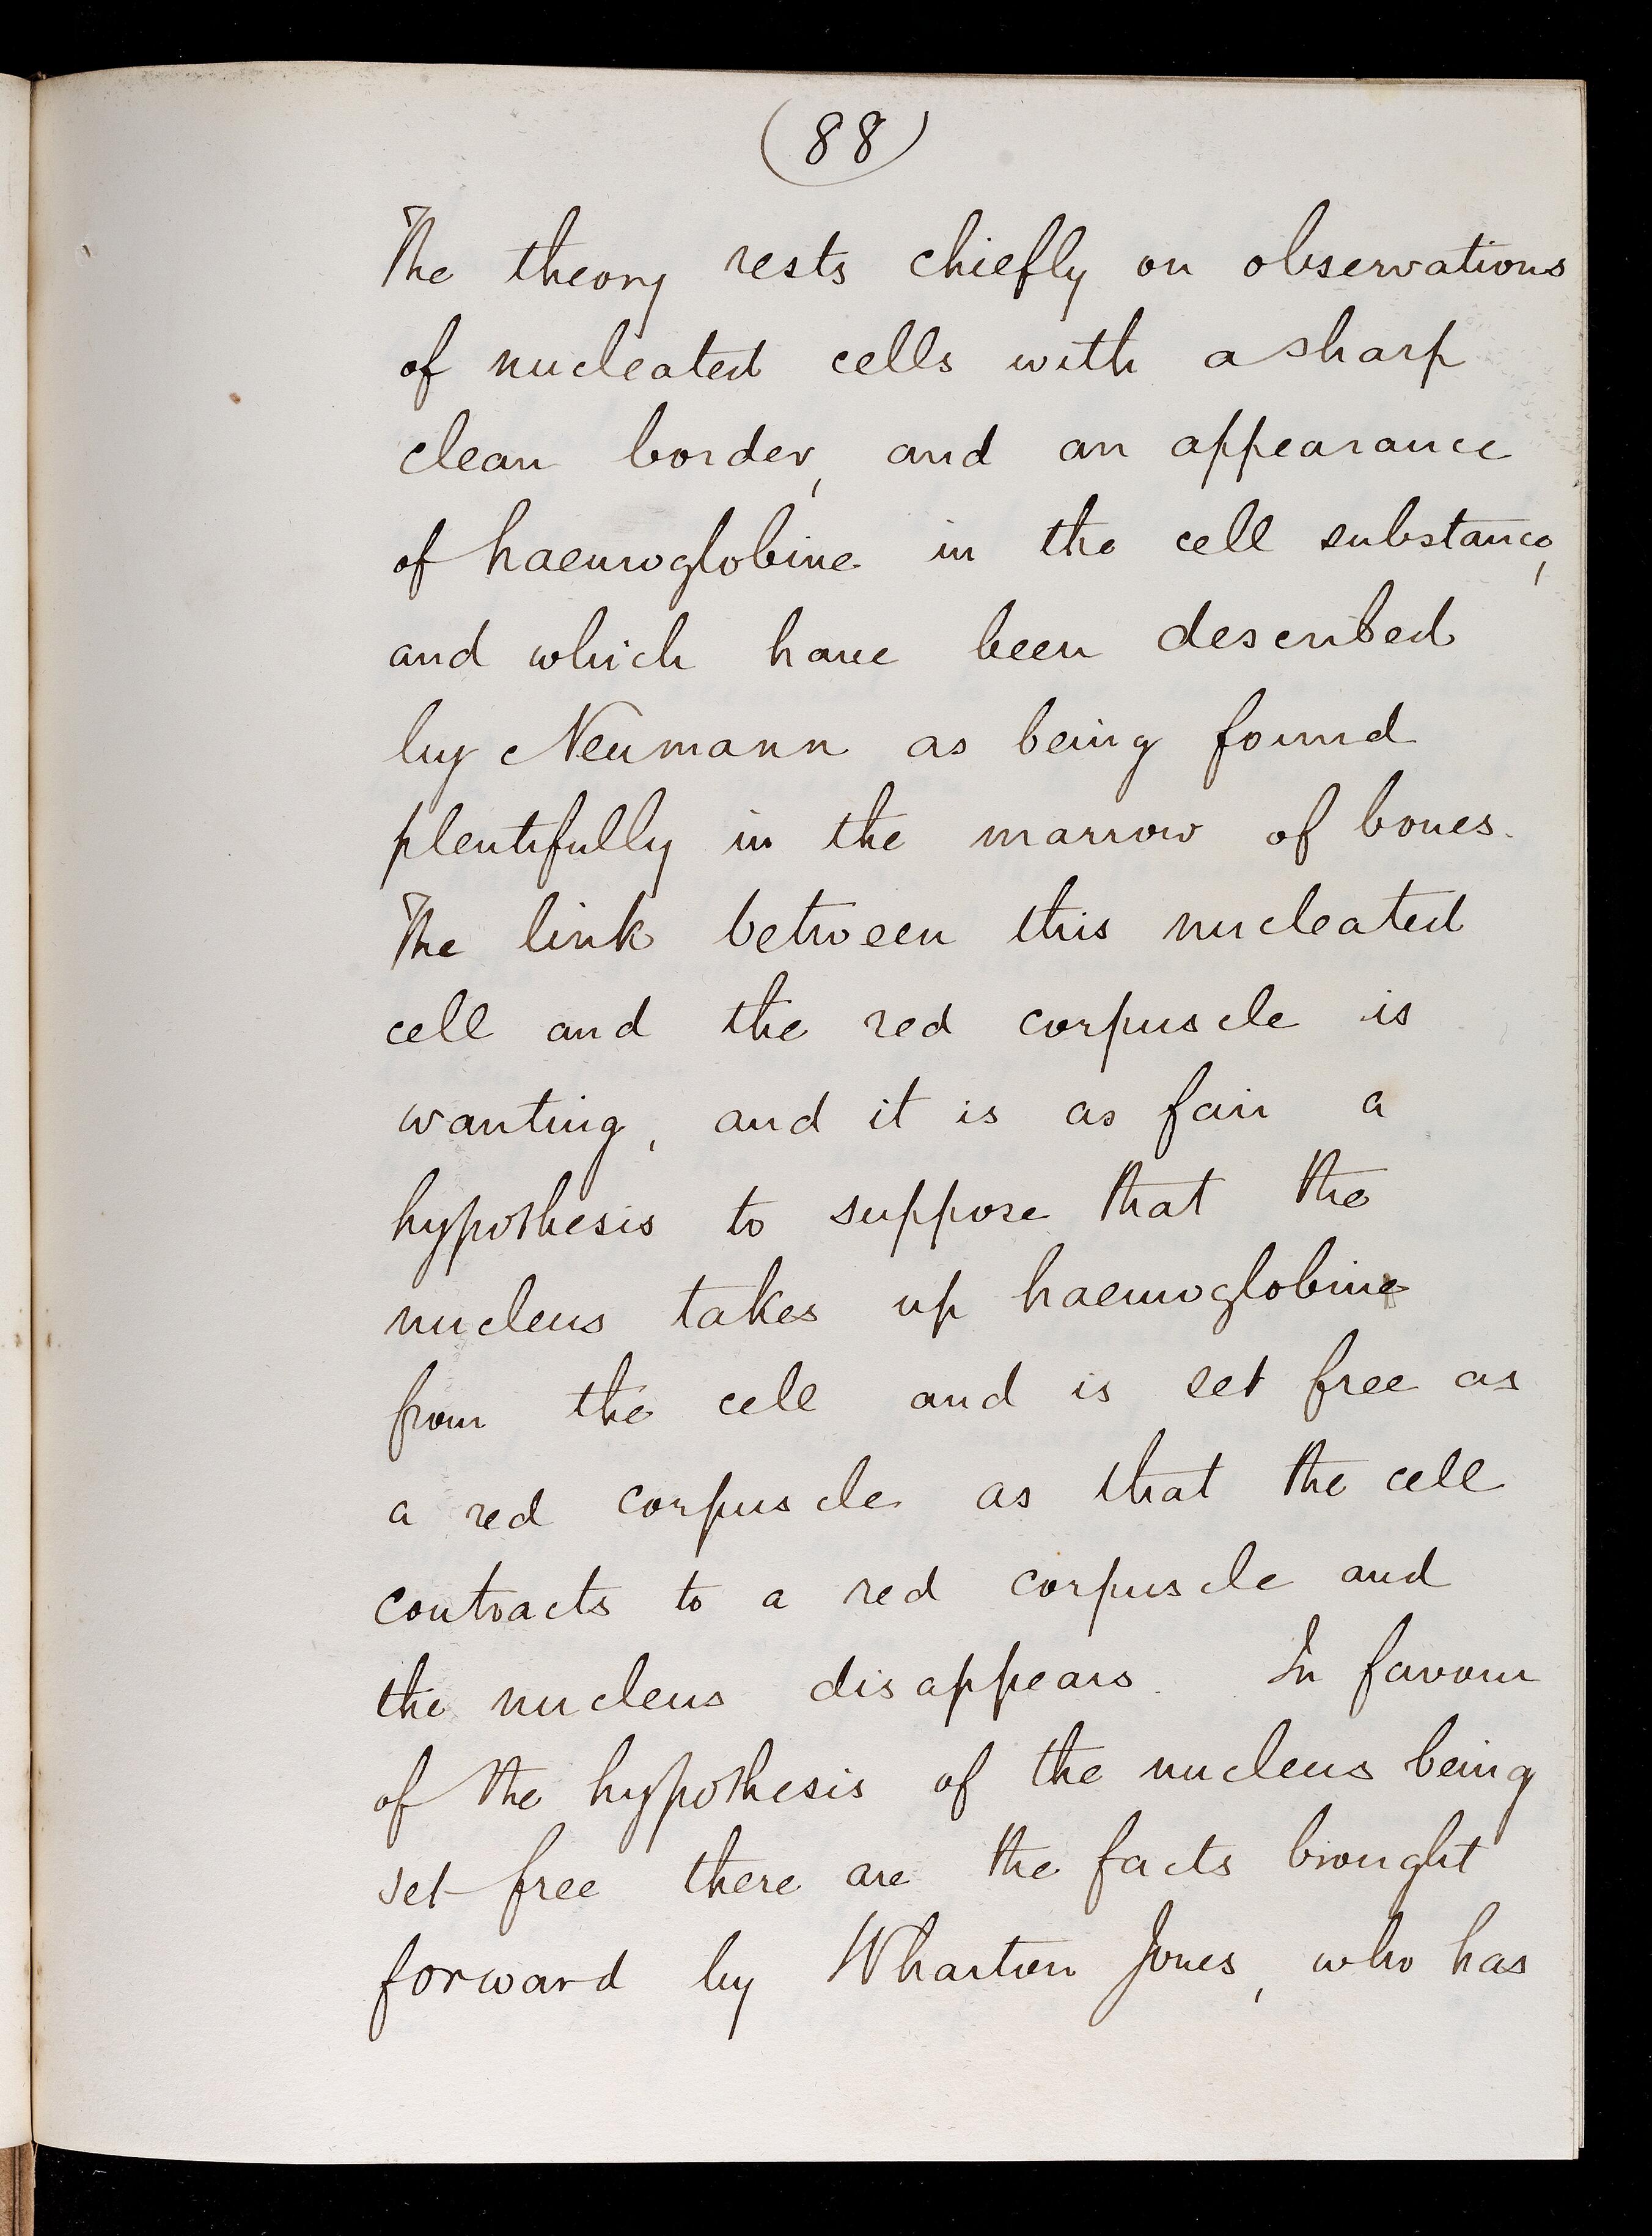 (88)
The theory rests chiefly on observations
of nucleated cells with a sharp
clean border, and an appearance
of haemoglobine in the cell substance,
and which have been described
by Neumann as being found
plentifully in the marrow of bones.
The link between this nucleated
cell and the red corpuscle is
wanting, and it is as fair a
hypothesis to suppose that the
nucleus takes up haemoglobine
from the cell and is set free as
a red corpuscle as that the cell
contracts to a red corpuscle and
the nucleus disappears. In favour
of the hypothesis of the nucleus being
set free there are the facts brought
forward by Wharton Jones, who has